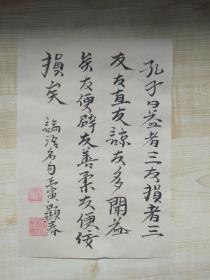 孔子曰益者三友損者三
友友直友諒友多聞益
矣友便辟友善柔友便佞
損矣
論語名句壬寅顯春